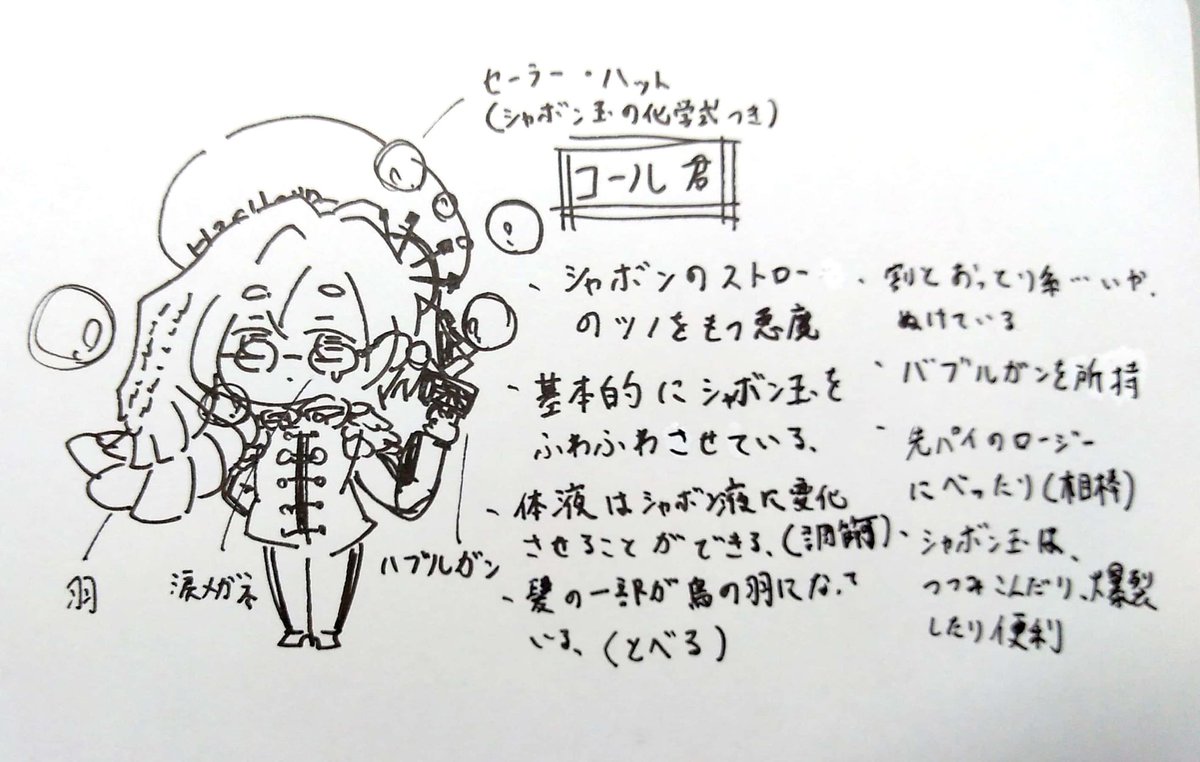 セーラー・ハット
(シャボン玉の化学式つき)
コール君
、シャボンのストロー
のツノをもつ悪魔
、基本的にシャボン玉を
ふわふわさせている、
、体液はシャボン液に変化
させることができる、(調節可)
、髪の一部が鳥の羽になって
いる、(とべる)
、割とおっとり系…いや、
ぬけている
、バブルガンを所持
、先パイのロージー
にべったり(相棒)
、シャボン玉は、
つつみこんだり、爆裂
したり便利
羽
涙メガネ
バブルガン